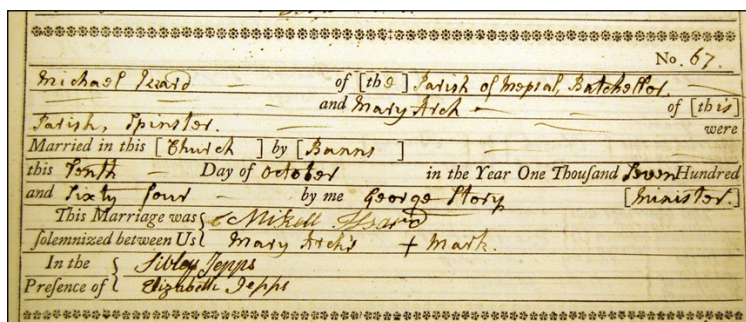 No. 67.
Michael Izard of [the] Parish of Mepsal, Batchellor.
and Mary Arch of [this]
Parish, Spinster. were
Married in this [Church] by [Banns]
this Tenth Day of October in the Year One Thousand Seven Hundred
and Sixty four by me George Story [Minister.]
This Marriage was { Mikell Izard
solemnized between Us { Mary Arch's + Mark.
In the { Sibley Jepps
Presence of { Elizabeth Jepps